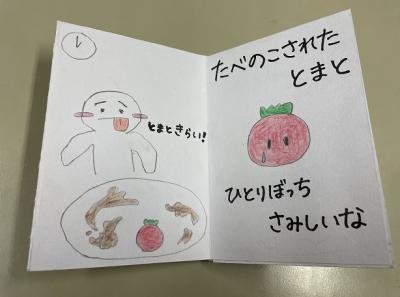 1
とまときらい!
たべのこされた
とまと
ひとりぼっち
さみしいな